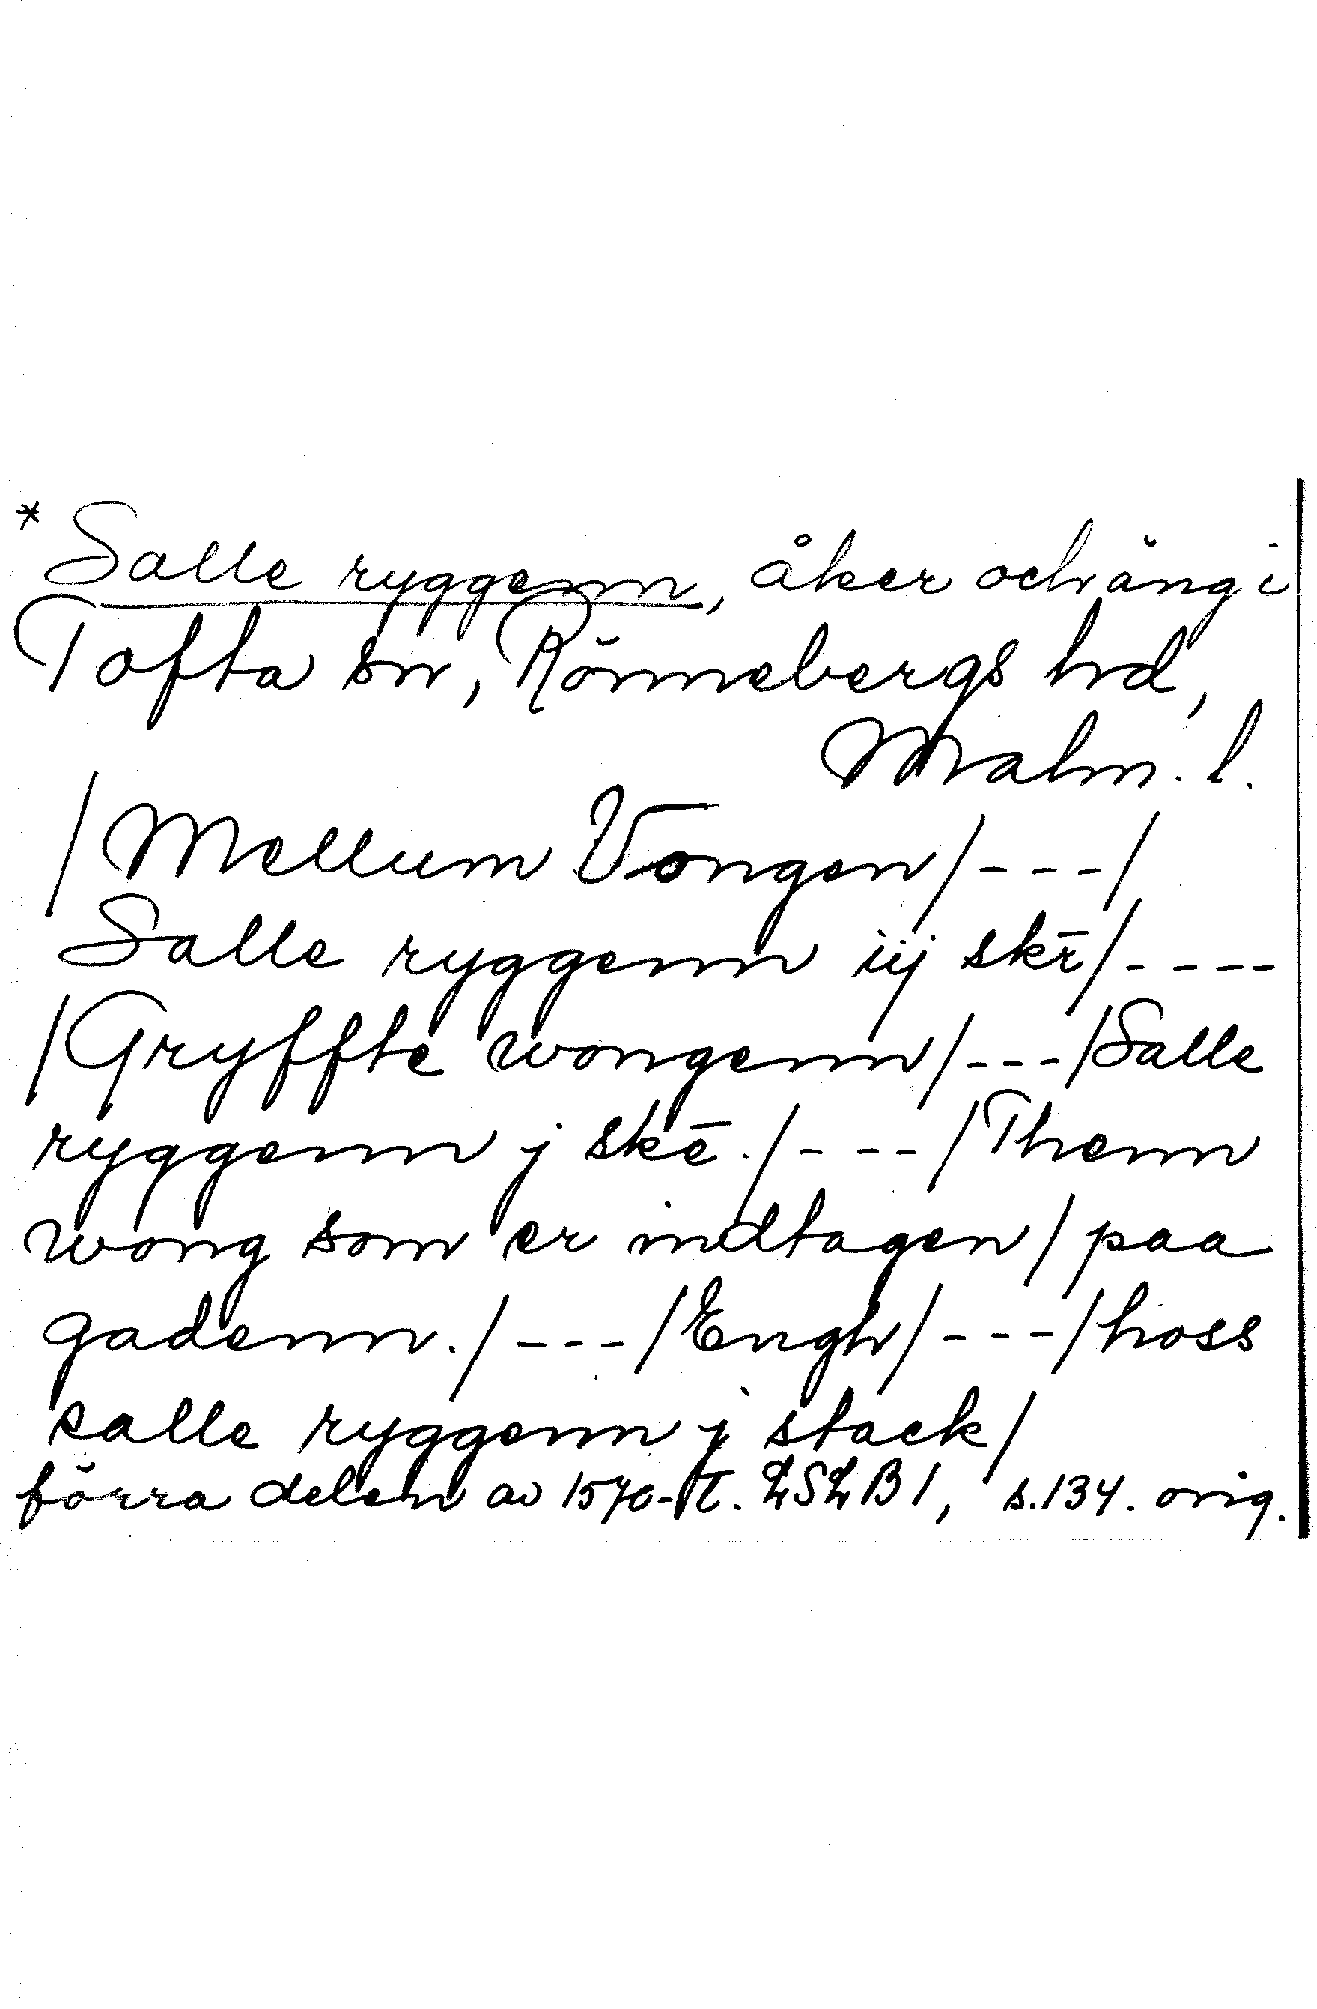 * Salle ryggenn, åker och äng i
Tofta sn, Rönnebergs hd,
Malm. l.
/Mellum Vongen/---/
Salle ryggenn iij skr̄/----
/Gryffte wongenn/---/Salle
ryggenn j skē./---/Thenn
wong som er indtagen/paa
gadenn./---/Engh/---/hoss
salle ryggenn j stack/
förra delen av 1570-t. LSLB1, s.134. orig.